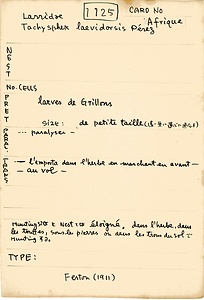 Larridae 1125 CARD NO
Tachysphex laevidorsis Pérez Afrique
NEST
NO. CELLS
PREY larves de Grillons
size: de petite taille
--- paralyses -
CARR. - l'emporte dans l'herbe en marchant en avant -
- au vol -
Hunting site & Nest éloigné, dans l'herbe, dans
les touffes, sous les pierres ou dans les trous du sol :
Hunting
TYPE:
Ferton (1911)